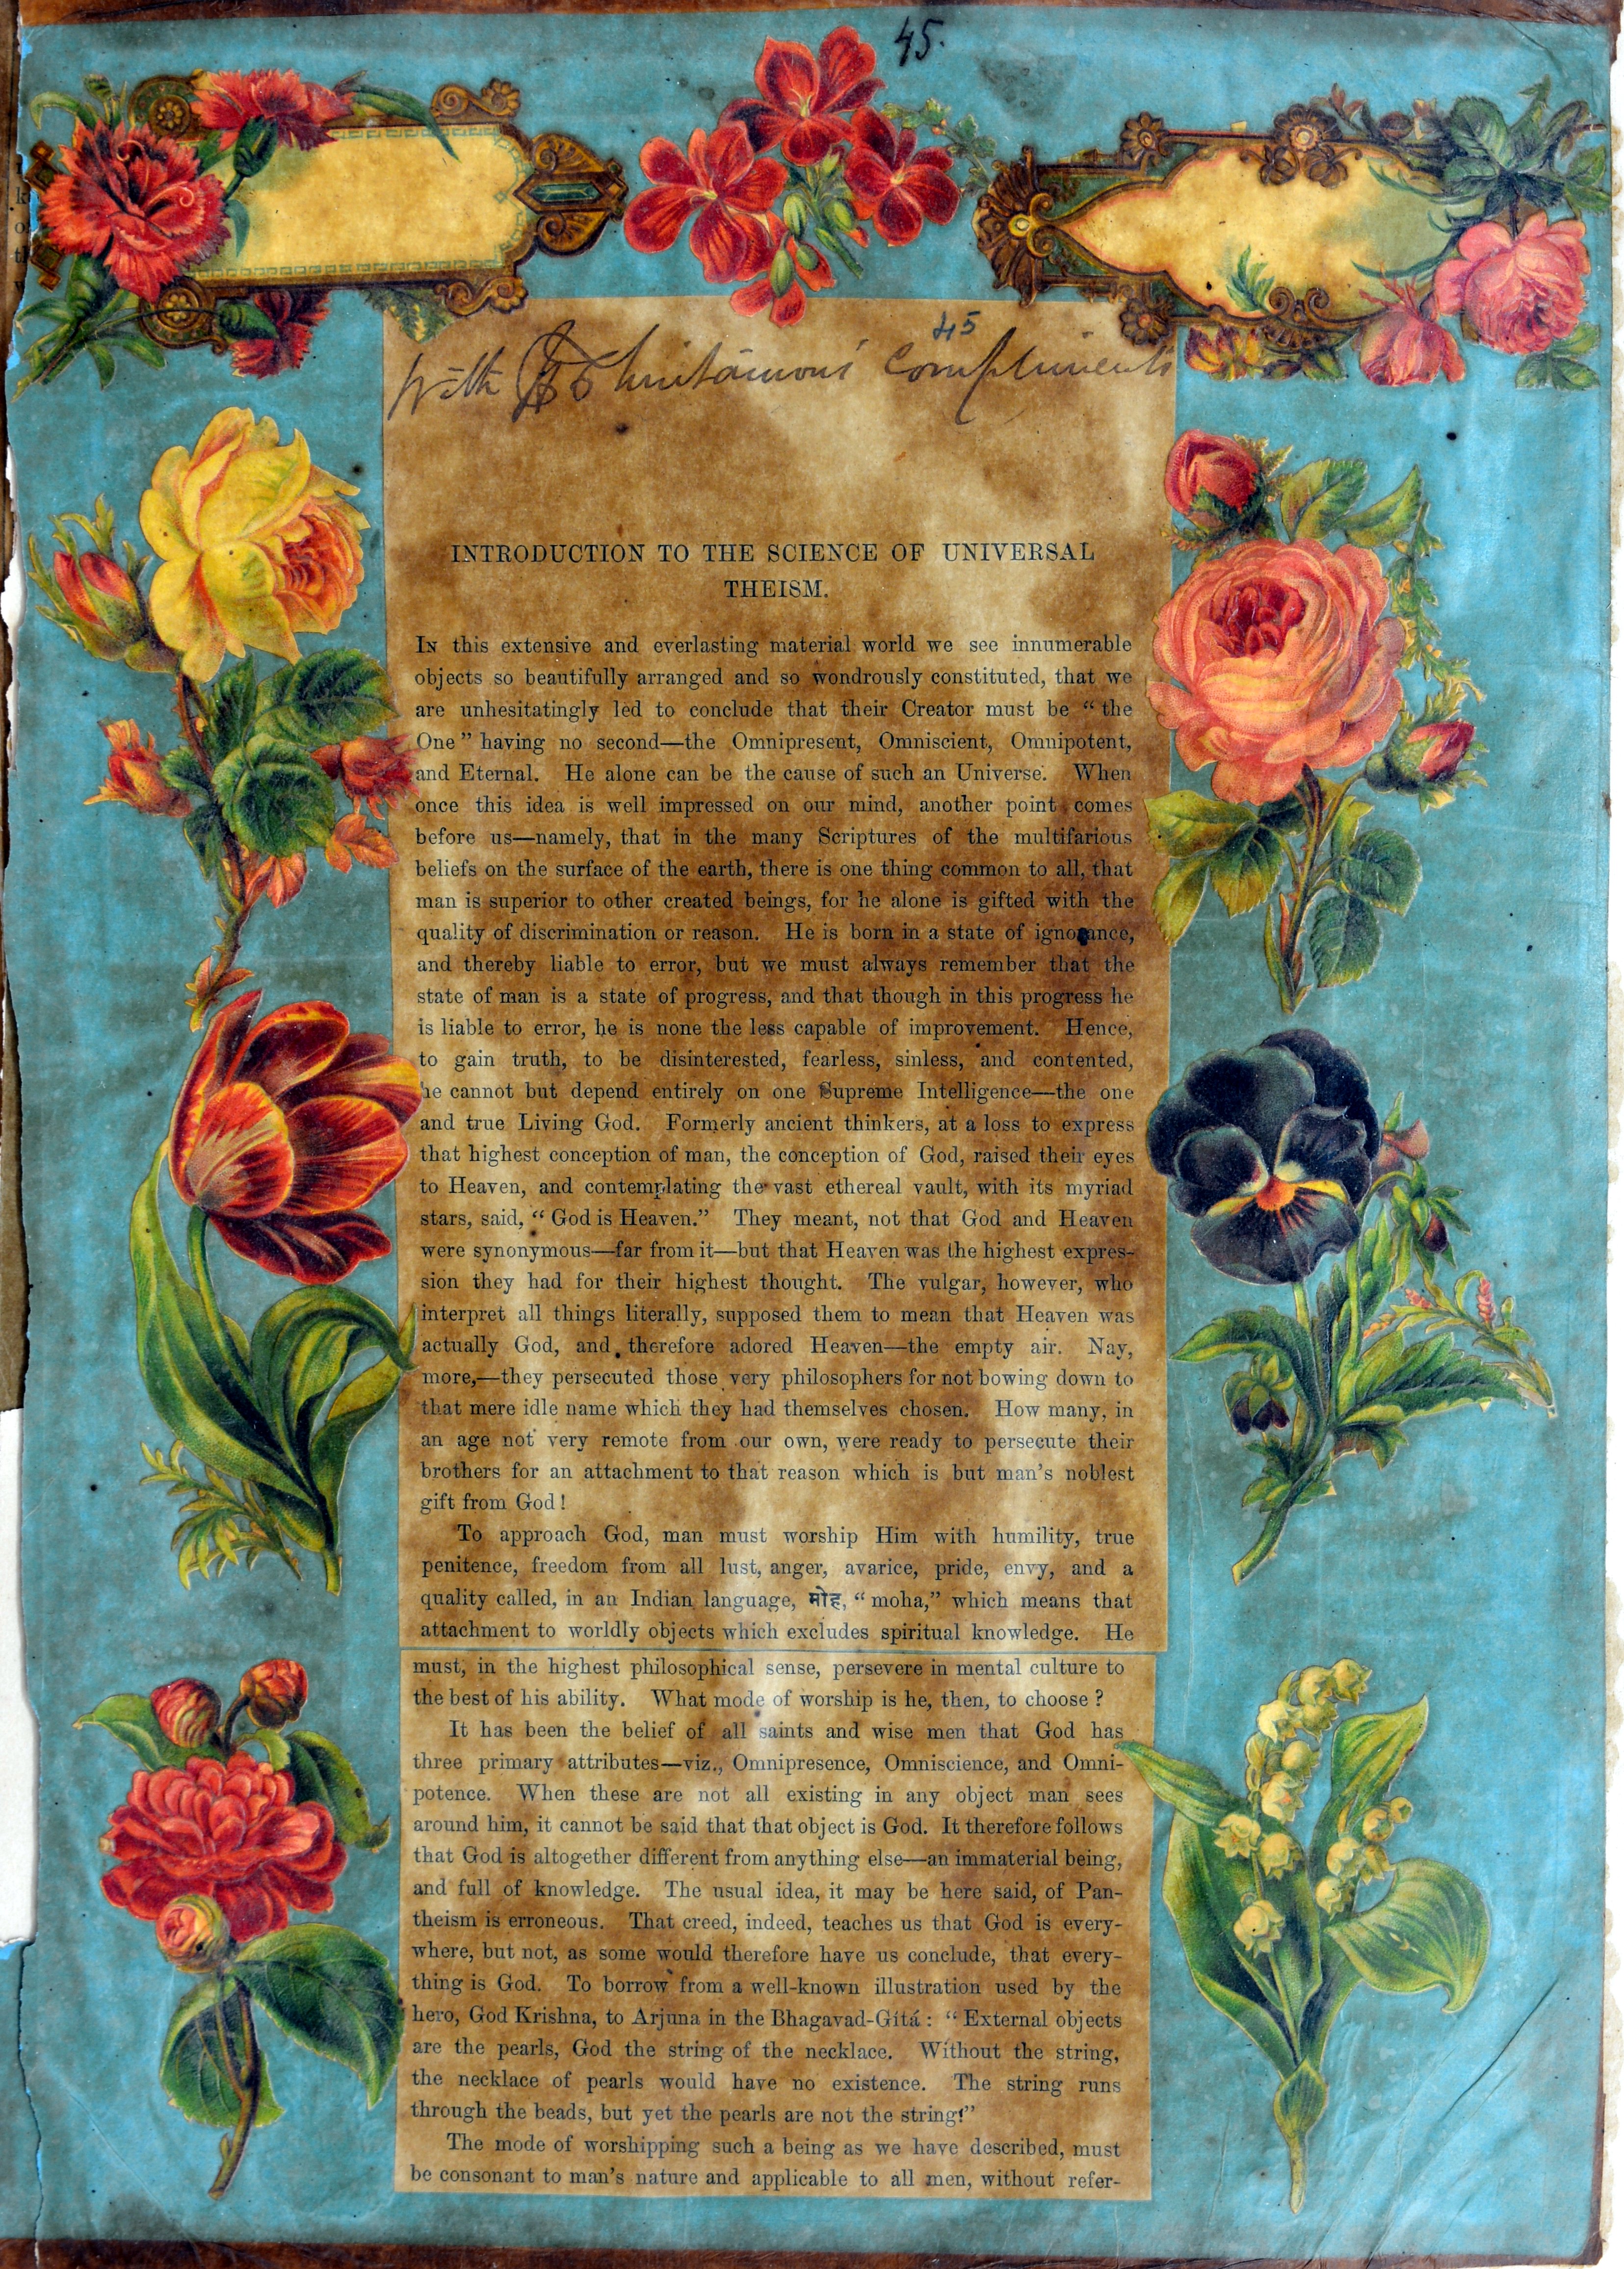 45.
45
With Chintámon's Compliments
INTRODUCTION TO THE SCIENCE OF UNIVERSAL
THEISM.
IN this extensive and everlasting material world we see innumerable
objects so beautifully arranged and so wondrously constituted, that we
are unhesitatingly led to conclude that their Creator must be “the
One” having no second—the Omnipresent, Omniscient, Omnipotent,
and Eternal. He alone can be the cause of such an Universe. When
once this idea is well impressed on our mind, another point comes
before us—namely, that in the many Scriptures of the multifarious
beliefs on the surface of the earth, there is one thing common to all, that
man is superior to other created beings, for he alone is gifted with the
quality of discrimination or reason. He is born in a state of ignorance,
and thereby liable to error, but we must always remember that the
state of man is a state of progress, and that though in this progress he
is liable to error, he is none the less capable of improvement. Hence,
to gain truth, to be disinterested, fearless, sinless, and contented,
he cannot but depend entirely on one Supreme Intelligence—the one
and true Living God. Formerly ancient thinkers, at a loss to express
that highest conception of man, the conception of God, raised their eyes
to Heaven, and contemplating the vast ethereal vault, with its myriad
stars, said, “God is Heaven.” They meant, not that God and Heaven
were synonymous—far from it—but that Heaven was the highest expres-
sion they had for their highest thought. The vulgar, however, who
interpret all things literally, supposed them to mean that Heaven was
actually God, and therefore adored Heaven—the empty air. Nay,
more,—they persecuted those very philosophers for not bowing down to
that mere idle name which they had themselves chosen. How many, in
an age not very remote from our own, were ready to persecute their
brothers for an attachment to that reason which is but man's noblest
gift from God!
To approach God, man must worship Him with humility, true
penitence, freedom from all lust, anger, avarice, pride, envy, and a
quality called, in an Indian language, मोह, “moha,” which means that
attachment to worldly objects which excludes spiritual knowledge. He
must, in the highest philosophical sense, persevere in mental culture to
the best of his ability. What mode of worship is he, then, to choose?
It has been the belief of all saints and wise men that God has
three primary attributes—viz., Omnipresence, Omniscience, and Omni-
potence. When these are not all existing in any object man sees
around him, it cannot be said that that object is God. It therefore follows
that God is altogether different from anything else—an immaterial being,
and full of knowledge. The usual idea, it may be here said, of Pan-
theism is erroneous. That creed, indeed, teaches us that God is every-
where, but not, as some would therefore have us conclude, that every-
thing is God. To borrow from a well-known illustration used by the
hero, God Krishna, to Arjuna in the Bhagavad-Gítá: “External objects
are the pearls, God the string of the necklace. Without the string,
the necklace of pearls would have no existence. The string runs
through the beads, but yet the pearls are not the string!”
The mode of worshipping such a being as we have described, must
be consonant to man's nature and applicable to all men, without refer-